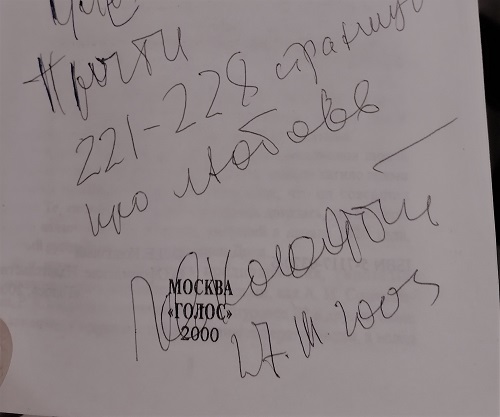 Прочти
221-228 страницу
про любовь
МОСКВА
«ГОЛОС»
2000
27.III.2003